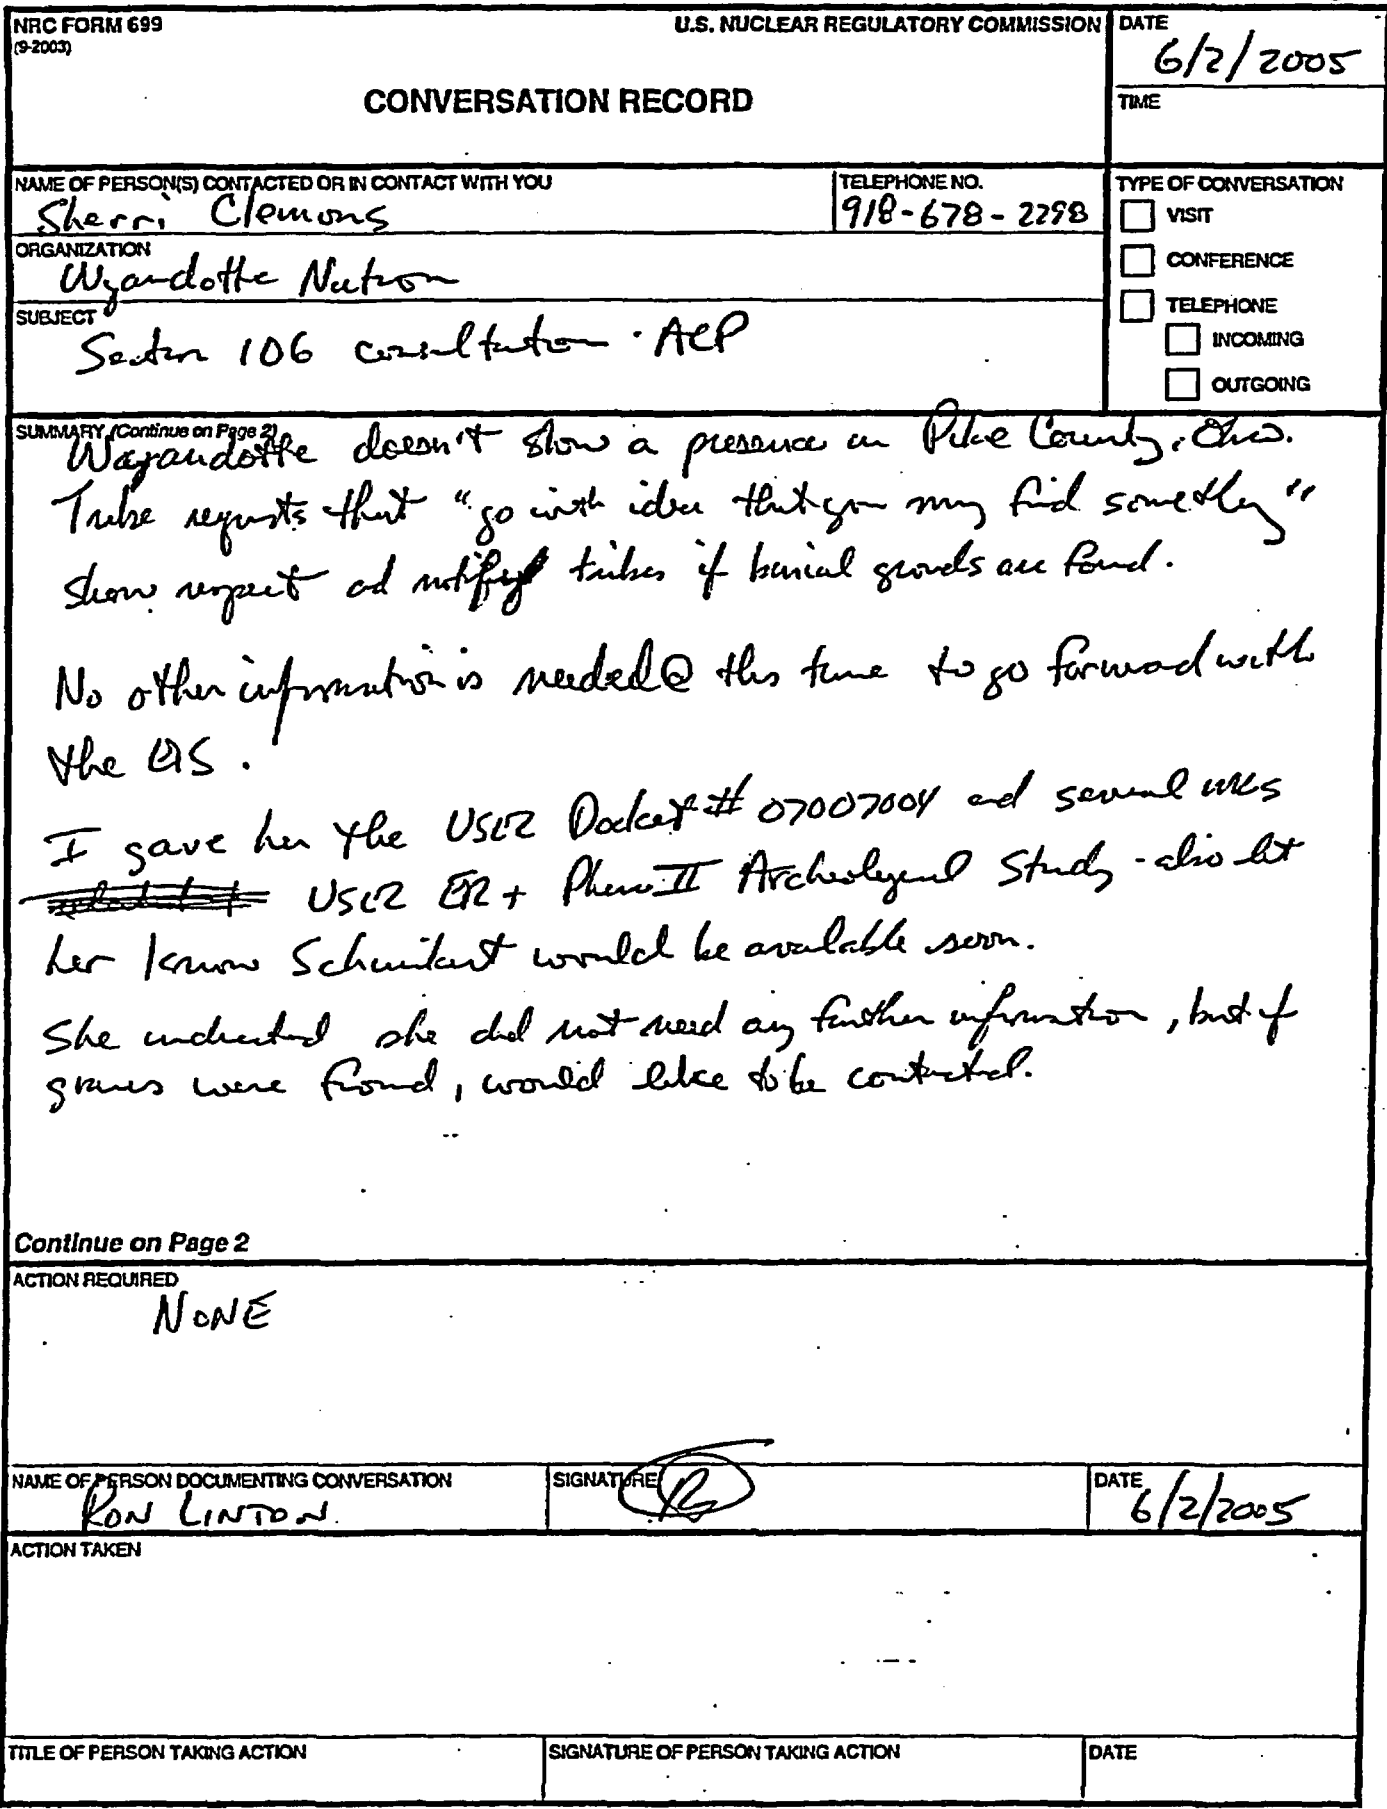 NRC FORM 699
(9-2003)
U.S. NUCLEAR REGULATORY COMMISSION
DATE
6/2/2005
CONVERSATION RECORD
TIME
NAME OF PERSON(S) CONTACTED OR IN CONTACT WITH YOU
Sherri Clemons
TELEPHONE NO.
918-678-2298
TYPE OF CONVERSATION
VISIT
CONFERENCE
TELEPHONE
INCOMING
OUTGOING
ORGANIZATION
Wyandotte Nation
SUBJECT
Section 106 consultation - ACP
SUMMARY (Continue on Page 2)
Wayandotte doesn't show a presence in Pike County, Ohio.
Tribe requests that "go with idea that you may find something"
show respect ad notify tribes if burial grounds are found.
No other information is needed @ this time to go forward with
the EIS.
I gave her the USEC Docket # 07007004 and several
USEC ER + Phase II Archeological Study - also let
her know would be available soon.
She indicated she did not need any further information, but if
graves were found, would like to be contacted.
Continue on Page 2
ACTION REQUIRED
NONE
NAME OF PERSON DOCUMENTING CONVERSATION
RON LINTON
SIGNATURE
DATE
6/2/2005
ACTION TAKEN
TITLE OF PERSON TAKING ACTION
SIGNATURE OF PERSON TAKING ACTION
DATE